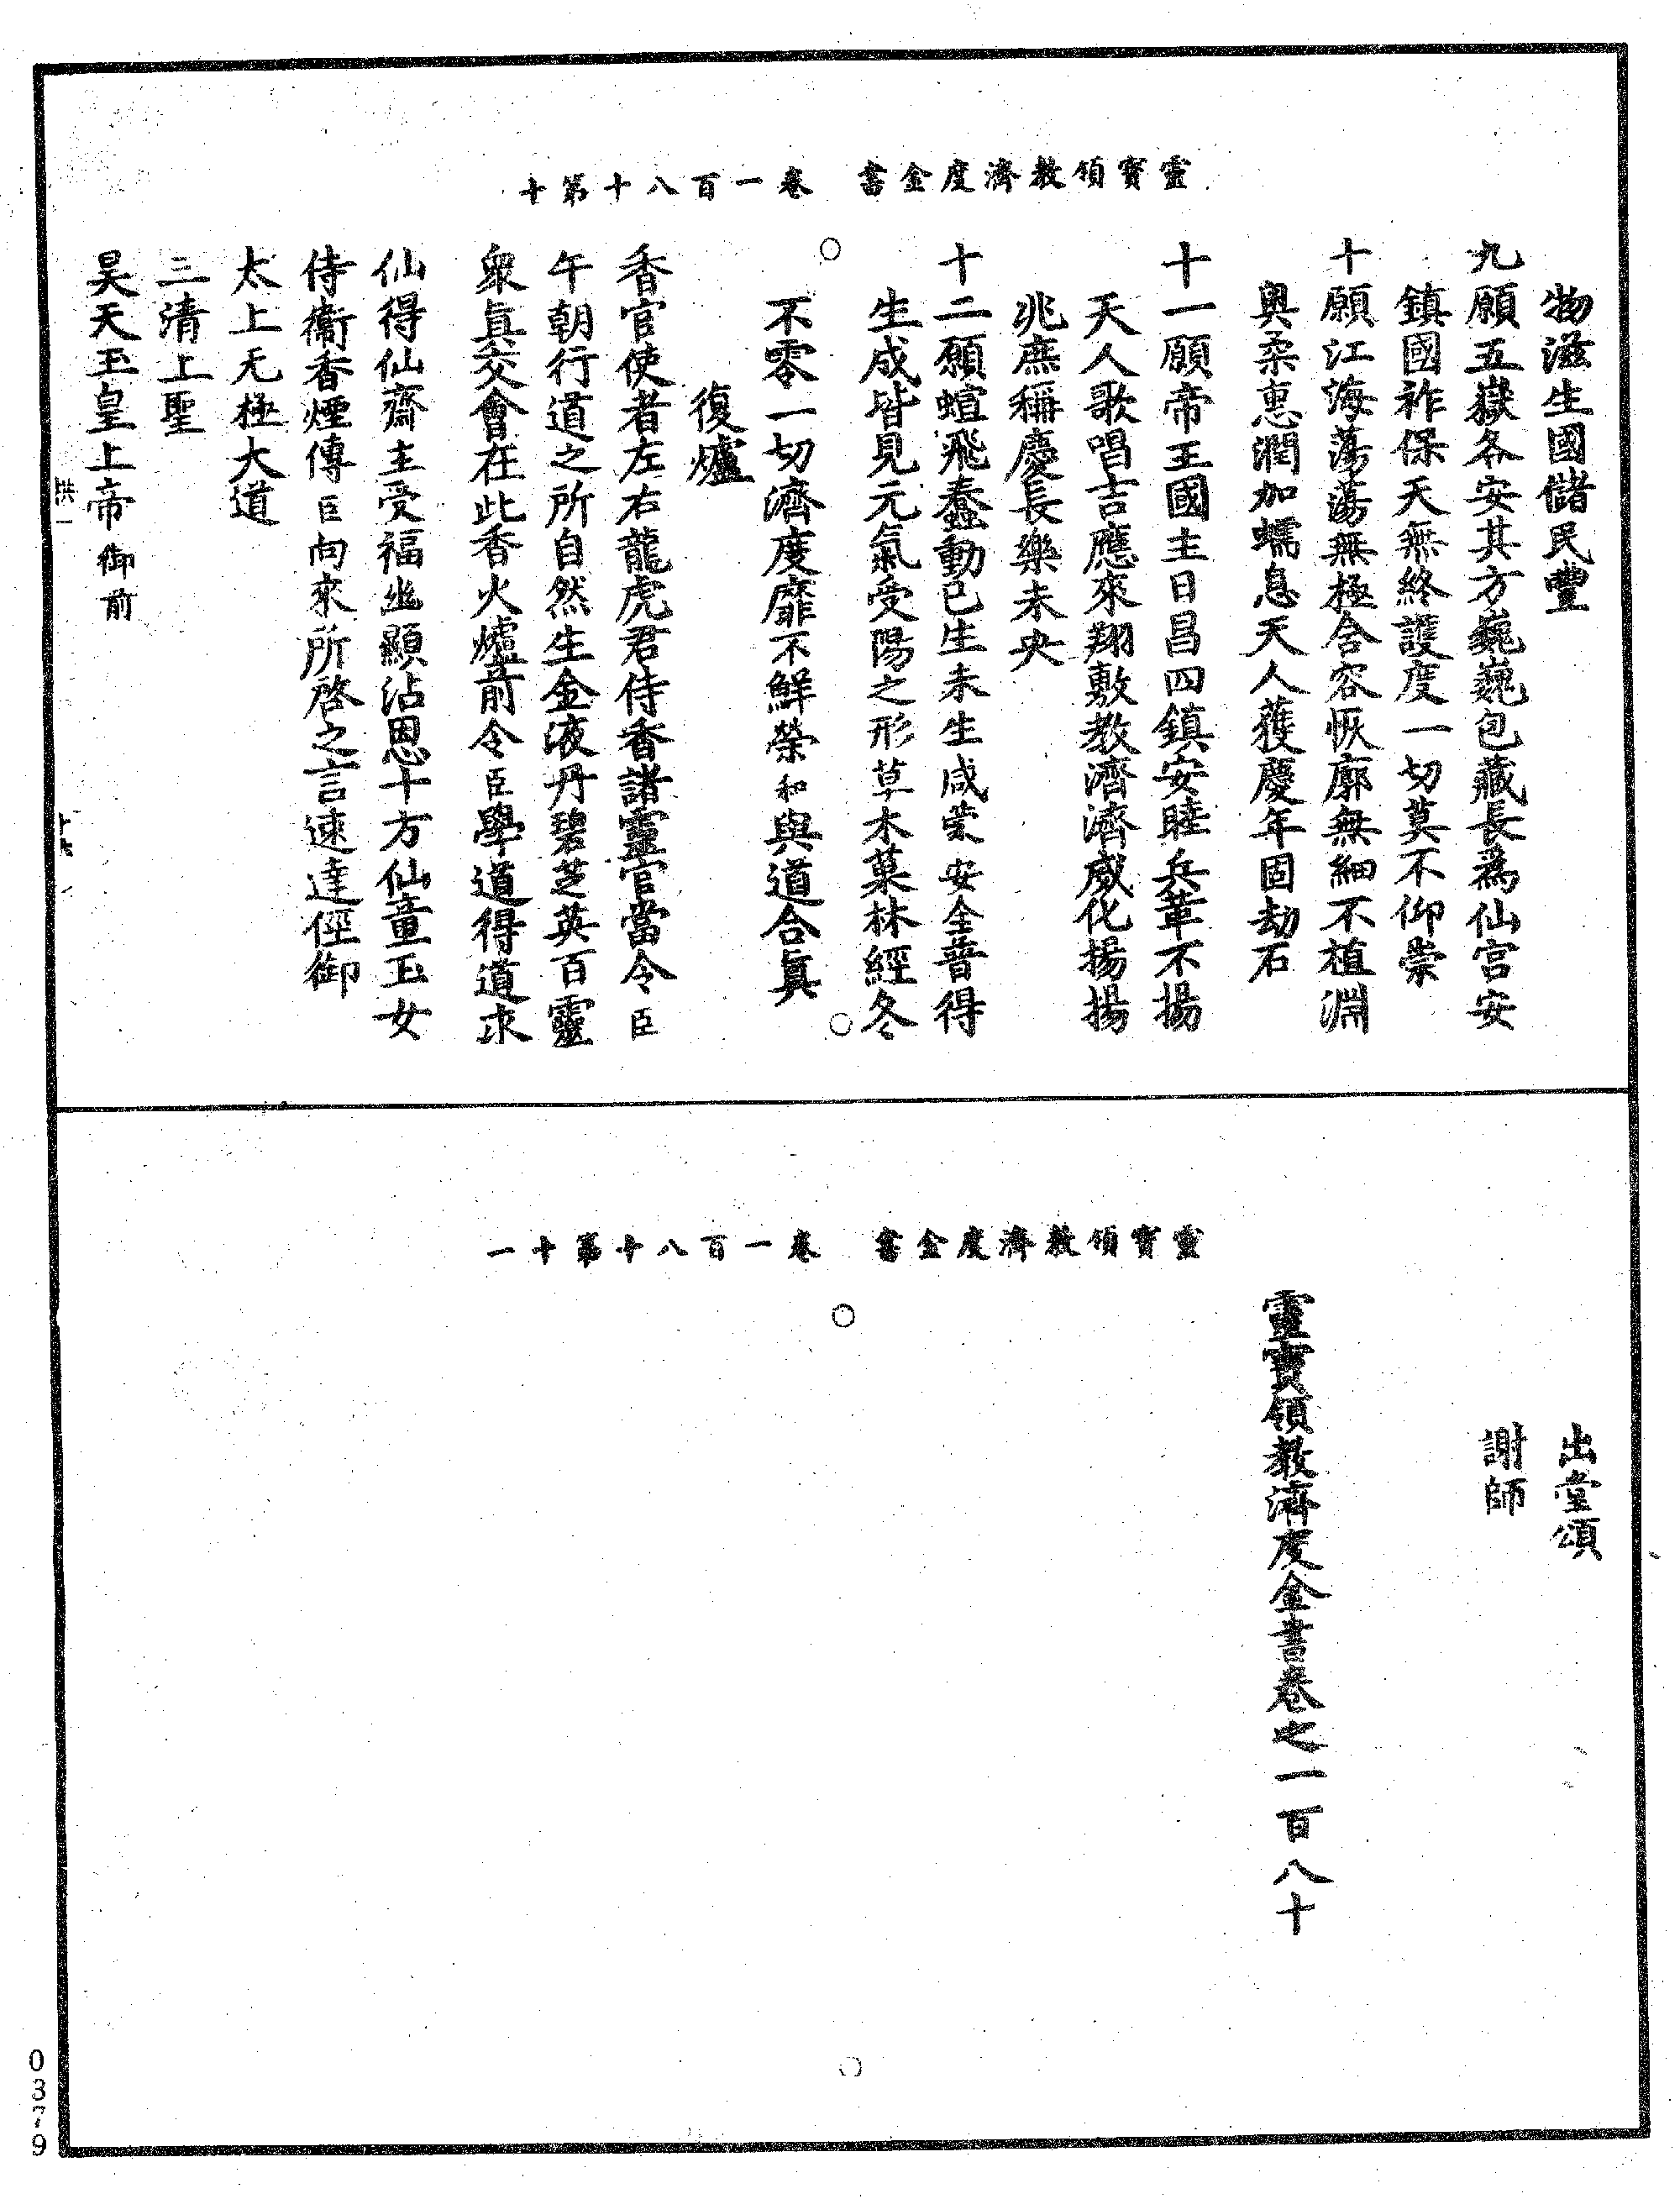 靈寶領教濟度金書　卷一百八十第十
物滋生國儲民豐
九願五嶽各安其方巍巍包藏長為仙宮安
鎮國祚保天無終護度一切莫不仰崇
十願江海蕩蕩無極含容恢廓無細不植淵
奧柔惠潤加蠕息天人獲慶年固劫石
十一願帝王國主日昌四鎮安睦兵革不揚
天人歌唱吉應來翔敷教濟濟威化揚揚
兆庶稱慶長樂未央
十二願蝖飛蠢動已生未生咸蒙安全普得
生成皆見元氣受陽之形草木菓林經冬
不零一切濟度靡不鮮榮和與道合真
復爐
香官使者左右龍虎君侍香諸靈官當令臣
午朝行道之所自然生金液丹碧芝英百靈
眾真交會在此香火爐前令臣學道得道求
仙得仙齋主受福幽顯沾恩十方仙童玉女
侍衛香煙傳臣向來所啓之言速達徑御
太上无極大道
三清上聖
昊天玉皇上帝御前
靈寶領教濟度金書　卷一百八十第十一
出堂頌
謝師
靈寶領教濟度金書卷之一百八十
0379